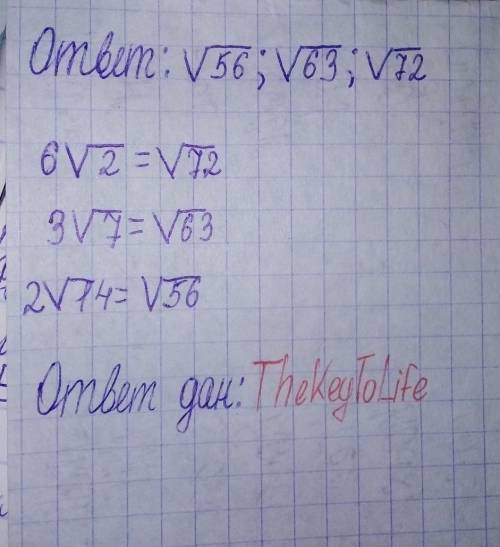 Ответ: √56; √63; √72
6√2 = √72
3√7 = √63
2√14 = √56
Ответ дан: TheKeyToLife